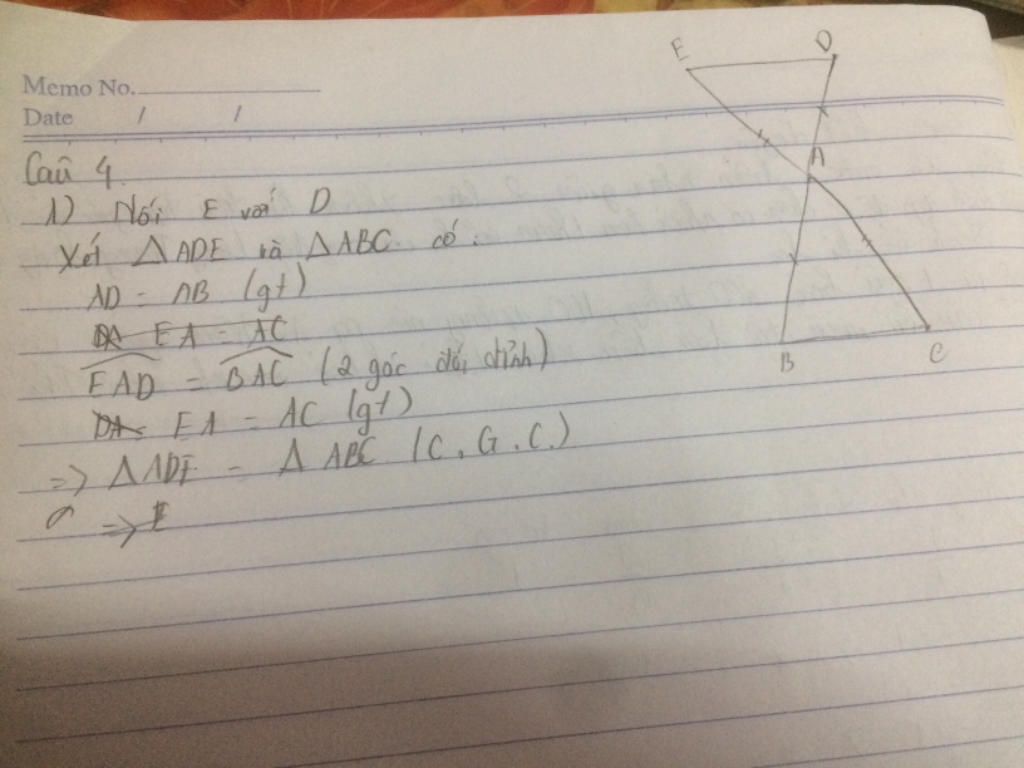 Memo No.
Date / /
Câu 4.
1) Nối E với D
Xét △ADE và △ABC có:
AD = AB (gt)
EA = AC
EAD = BAC (2 góc đối đỉnh)
EA = AC (gt)
=> △ADE = △ABC (C.G.C.)
=>
E
D
A
B
C